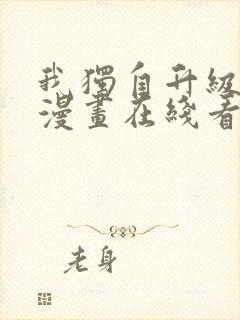 我獨自升級
漫畫在綫看
老身